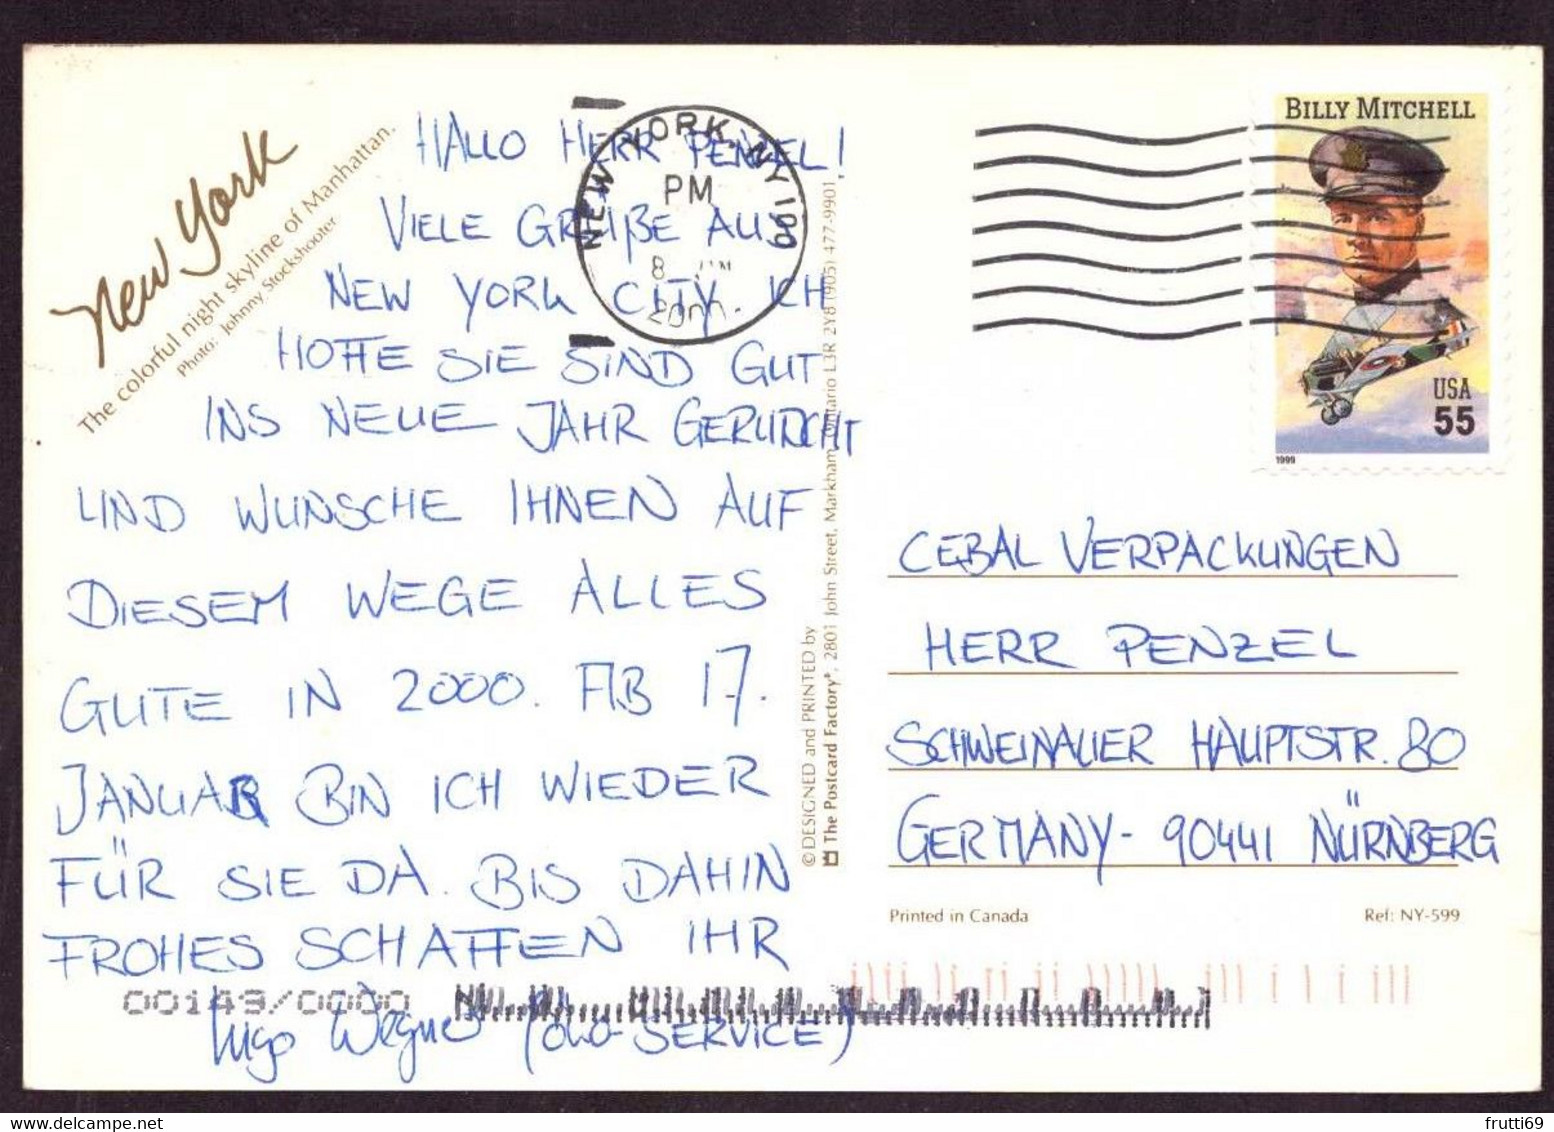 New York
The colorful night skyline of Manhattan.
Photo: Johnny Stockshooter
HALLO HERR PENZEL!
VIELE GRÜßE AUS
NEW YORK CITY ICH
HOFFE SIE SIND GUT
INS NEUE JAHR GERUTSCHT
UND WÜNSCHE IHNEN AUF
DIESEM WEGE ALLES
GUTE IN 2000. AB 17.
JANUAR BIN ICH WIEDER
FÜR SIE DA. BIS DAHIN
FROHES SCHAFFEN IHR
Ingo Wegner (SERVICE)
00143/0000
NEW YORK, NY 100
PM
8
2000
© DESIGNED and PRINTED by
The Postcard Factory®, 2801 John Street, Markham, Ontario L3R 2Y8 (905) 477-9901
BILLY MITCHELL
USA
55
1999
CEBAL VERPACKUNGEN
HERR PENZEL
SCHWEINAUER HAUPTSTR. 80
GERMANY - 90441 NÜRNBERG
Printed in Canada
Ref: NY-599
frutti69